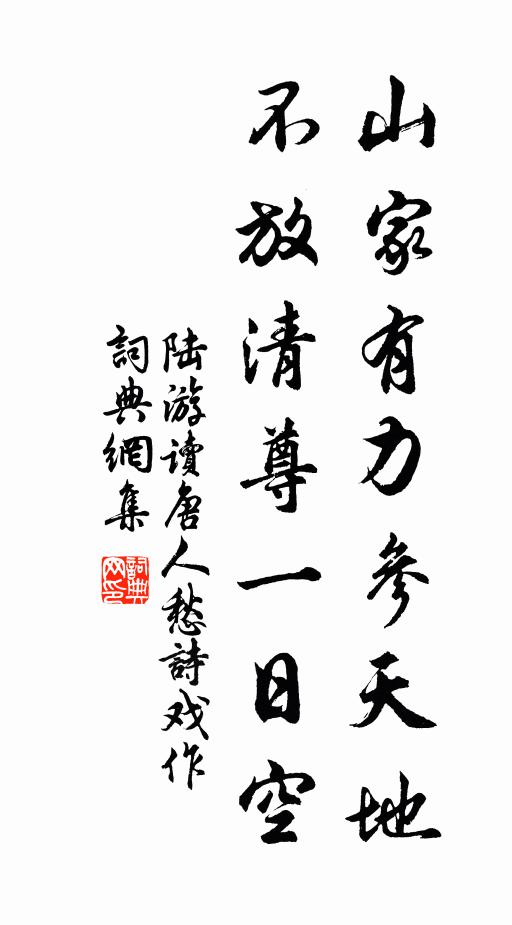 山家有力參天地
不放清尊一日空
陸游讀唐人愁詩戏作
詞典網集
詞典
网印